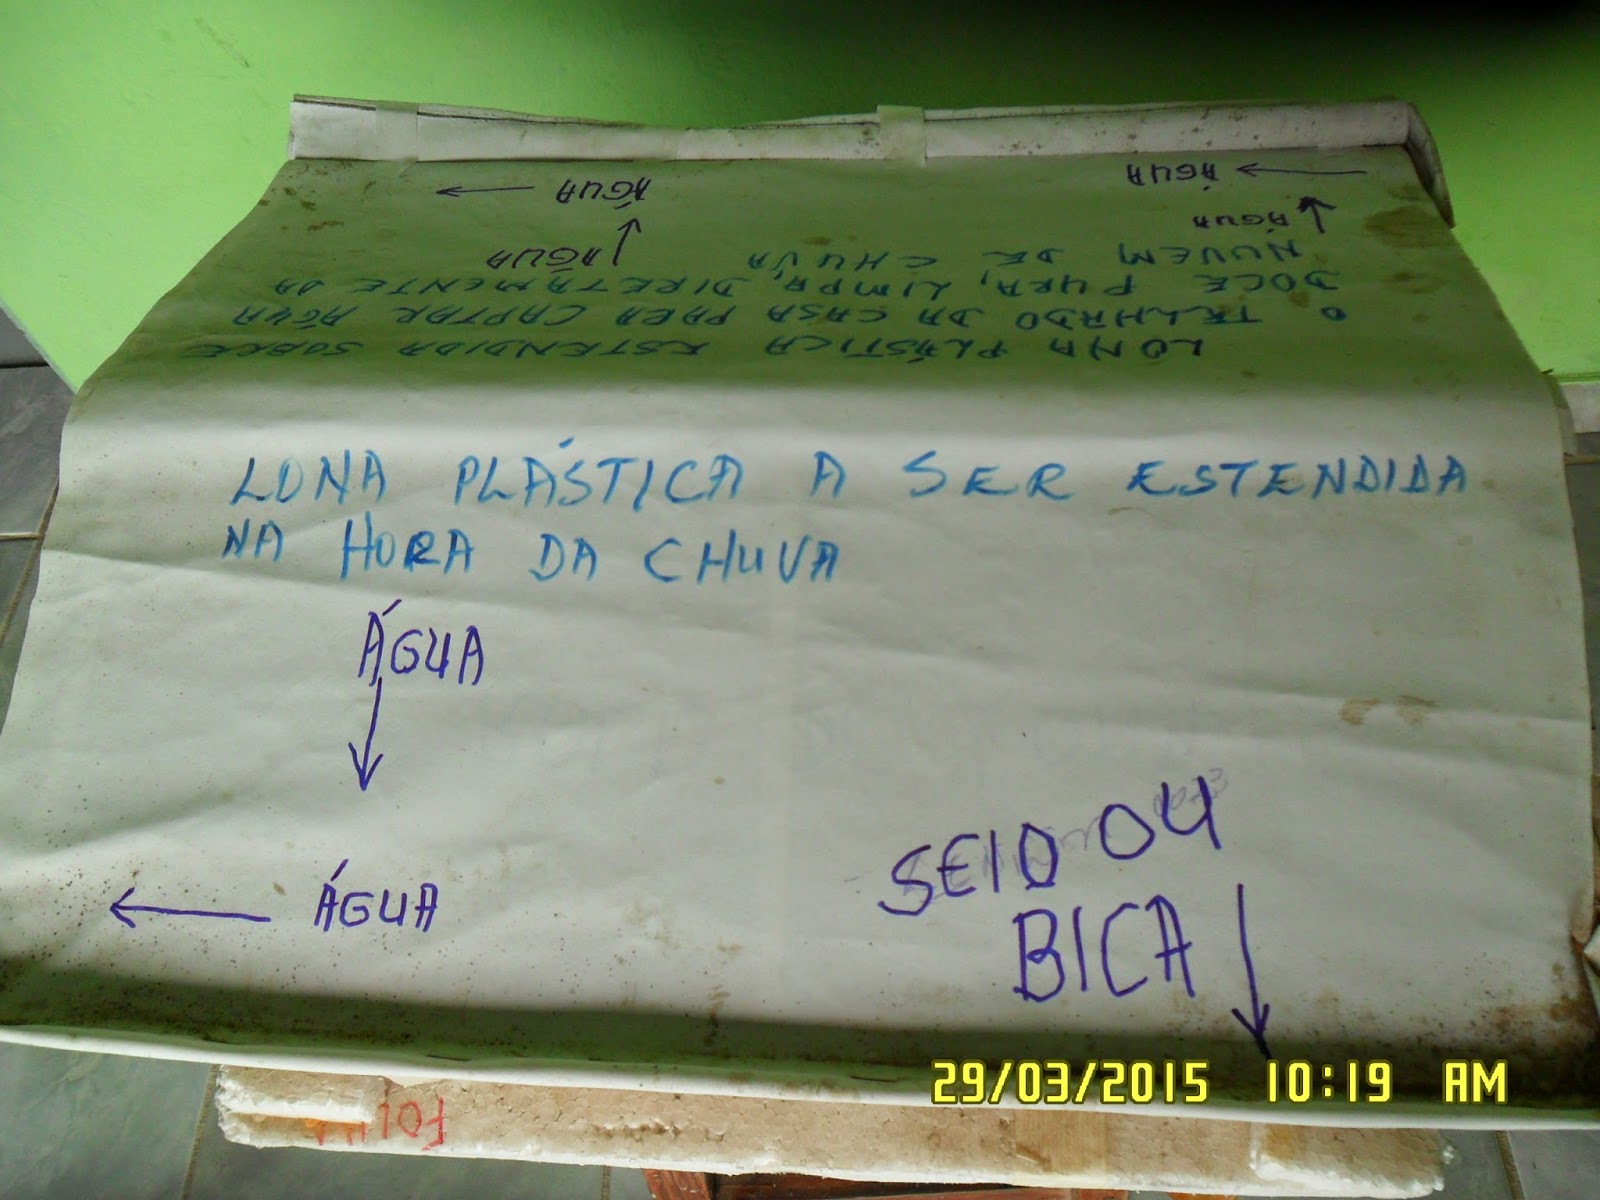 ÁGUA
ÁGUA
ÁGUA
ÁGUA
LONA PLÁSTICA ESTENDIDA SOBRE
O TELHADO DA CASA PARA CAPTAR ÁGUA
DOCE PURA, LIMPA, DIRETAMENTE DA
NUVEM DE CHUVA
LONA PLÁSTICA A SER ESTENDIDA
NA HORA DA CHUVA
ÁGUA
ÁGUA
SEIO OU
BICA
29/03/2015 10:19 AM